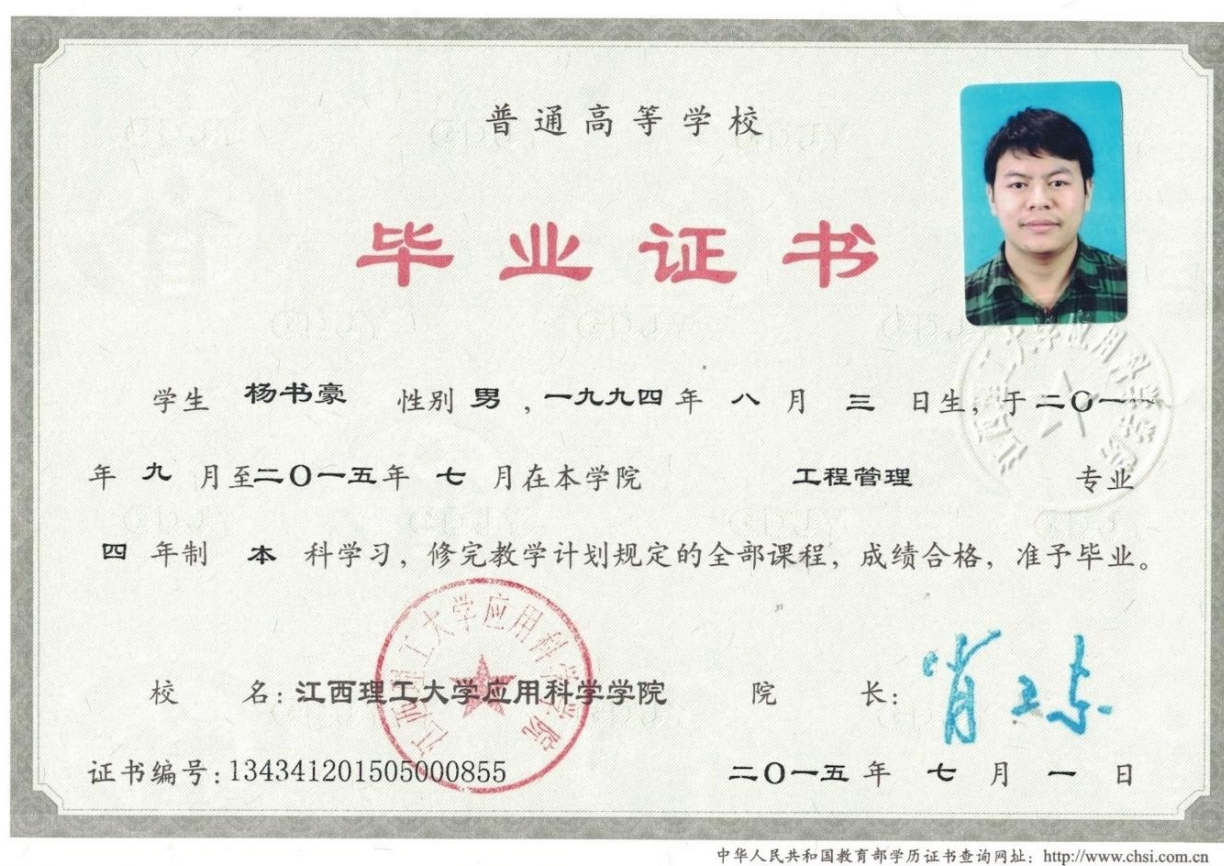 普通高等学校
毕业证书
学生 杨书豪 性别 男 ,一九九四 年 八 月 三 日生, 于 二〇一一
年 九 月至二〇一五年 七 月在本学院 工程管理 专业
四 年制 本 科学习, 修完教学计划规定的全部课程, 成绩合格, 准予毕业。
江西理工大学应用科学学院
校 名: 江西理工大学应用科学学院 院 长:
证书编号: 134341201505000855 二〇一五 年 七 月 一 日
中华人民共和国教育部学历证书查询网址: http://www.chsi.com.cn